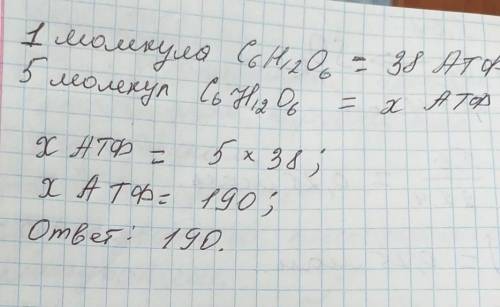 1 молкула C₆H₁₂O₆ = 38 АТФ
5 молкул C₆H₁₂O₆ = x АТФ
x АТФ = 5 × 38;
x АТФ = 190;
Ответ: 190.